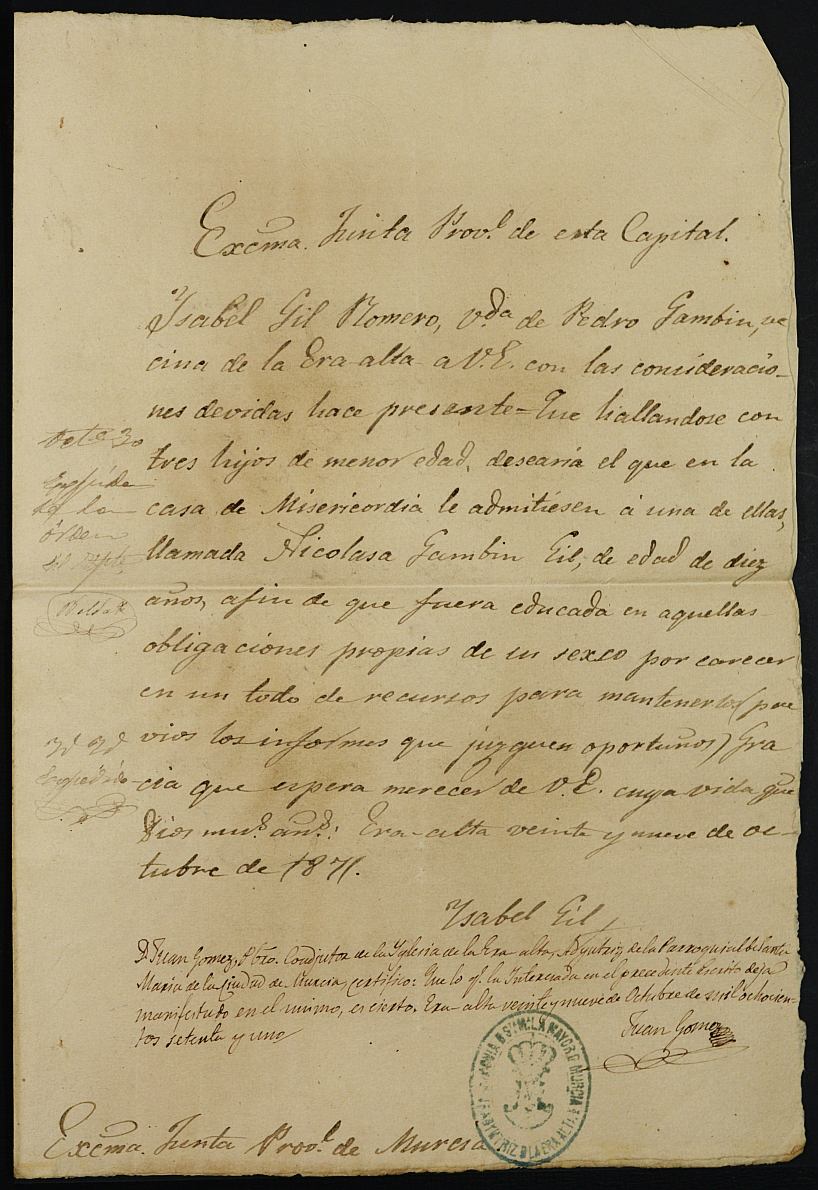 Excma. Junta Provl. de esta Capital.
Ysabel Gil Romero, vda de Pedro Gambin, ve
cina de la Era-alta a V.E. con las consideracio-
nes devidas hace presente= Que hallandose con
tres hijos de menor edad, desearia el que en la
casa de Misericordia le admitiesen á una de ellas,
llamada Nicolasa Gambin Gil, de edad de diez
años, afin de que fuera educada en aquellas
obligaciones propias de su sexco por carecer
en un todo de recursos para mantenerlos (pre
vios los informes que juzguen oportunos) Gra
cia que espera merecer de V.E. cuya vida gue
Dios muc. añs. Era-alta veinte y nueve de oc-
tubre de 1871.
Ysabel Gil
Octe 30
Expida
se la
órden
Expedido
D. Juan Gomez, Pbro. Coadjutor de la Yglesia de la Era alta, Adyutriz de la Parroquial de Santa
Maria de la Ciudad de Murcia, certifico: Que lo q. la Interesada en el precedente escrito deja
manifestado en el mismo, es cierto. Era-alta veinte y nueve de Octubre de mil ochocien-
tos setenta y uno
Juan Gomez
Excma. Junta Provl. de Murcia